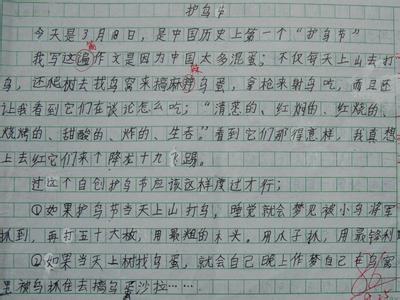 护鸟节
今天是3月18日，是中国历史上第一个“护鸟节”
我写这遍作文是因为中国太多混蛋；不仅每天上山去打
鸟，还爬树去找鸟窝来搞麻辣鸟蛋，拿枪来射鸟吃，而且还
让我看到它们在谈论怎么吃；“清蒸的、红焖的、红烧的、
烧烤的、甜酸的、炸的、生吞。”看到它们那得意样，我真想
上去红它们来个降龙十九飞踢。
过这个自创护鸟节应该这样度过才行：
①如果护鸟节当天上山打鸟，睡觉就会梦见被小鸟将军
抓到，再打五十大板，用最粗的木头。用爪子抓，用最锋利
②如果当天上树找鸟蛋，就会自己晚上作梦自己在鸟窝
里被鸟抓住去搞鸟蛋沙拉……